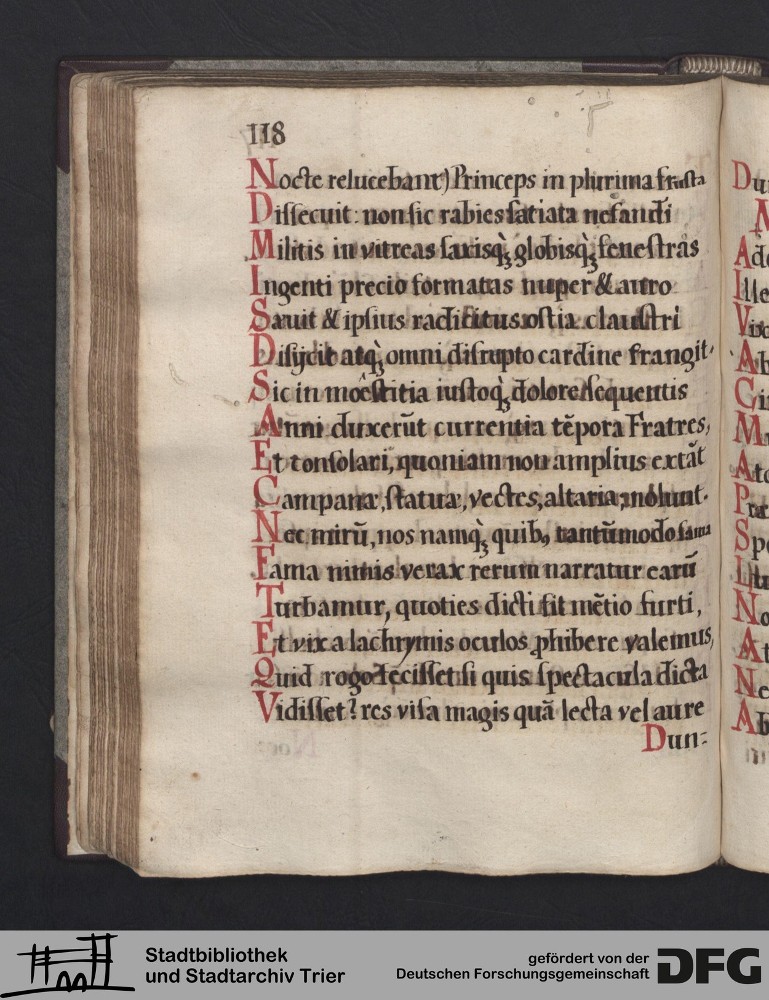 118
Nocte relucebant) Princeps in plurima frusta
Dissecuit: non sic rabies satiata nefandi
Militis in vitreas saxisq̀ꝫ globisq̀ꝫ fenestras
Ingenti precio formatas nuper & auro
Sævit & ipsius radicitus ostia claustri
Disijcit atq̀ꝫ omni disrupto cardine frangit.
Sic in moêstitia iustoq̀ꝫ dolore sequentis
Anni duxerūt currentia tēpora Fratres,
Et consolari, quoniam non amplius extāt
Campanæ, statuæ, vectes, altaria, nôlunt.
Nec mirū, nos namq̀ꝫ quibꝯ tantūmodo fama
Fama nimis verax rerum narratur earū
Turbamur, quoties dicti fit mētio furti,
Et vix a lachrymis oculos ꝓhibere valemus,
Quid rogo fecisset si quis spectacula dicta
Vidisset? res visa magis quā lecta vel aure
Dun=
Stadtbibliothek
und Stadtarchiv Trier
gefördert von der
Deutschen Forschungsgemeinschaft
DFG